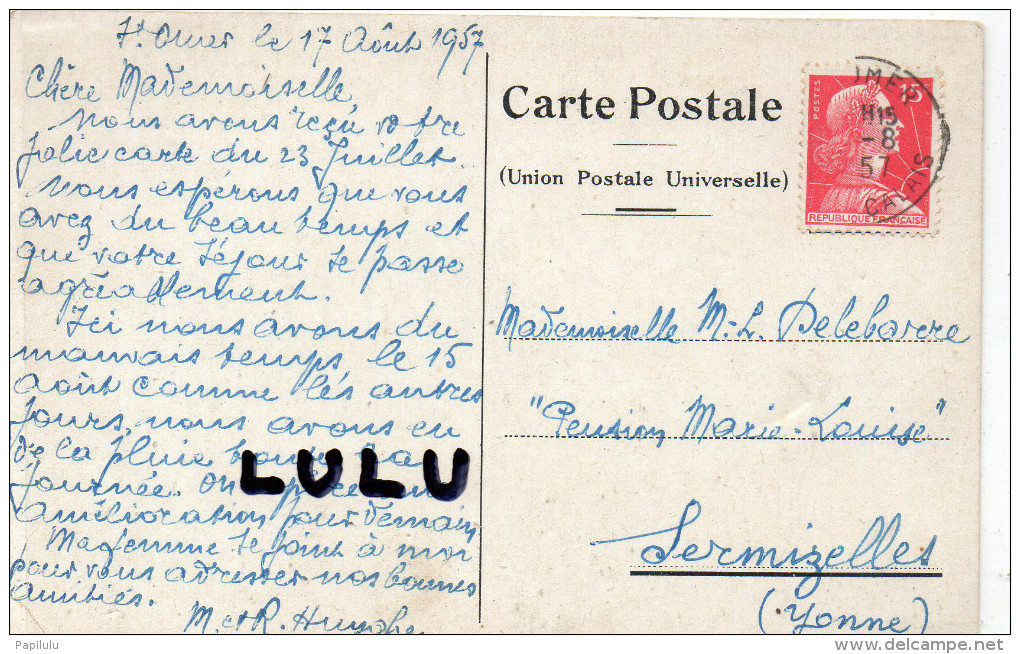 St Omer le 17 Août 1957
Chère Mademoiselle,
Nous avons reçu votre
jolie carte du 23 Juillet.
Nous espérons que vous
avez du beau temps et
que votre séjour se passe
agréablement.
Ici nous avons du
mauvais temps, le 15
août comme les autres
jours, nous avons eu
de la pluie toute la
journée. On
amélioration pour demain
Ma femme se joint à moi
pour vous adresser nos bonnes
amitiés.
M. et R.
LULU
Carte Postale
(Union Postale Universelle)
POSTES
15
REPUBLIQUE FRANÇAISE
OMER
H15
-8
57
CALAIS
Mademoiselle M.-L. Delebarre
"Pension Marie-Louise"
Sermizelles
(Yonne)
Papilulu
www.delcampe.net